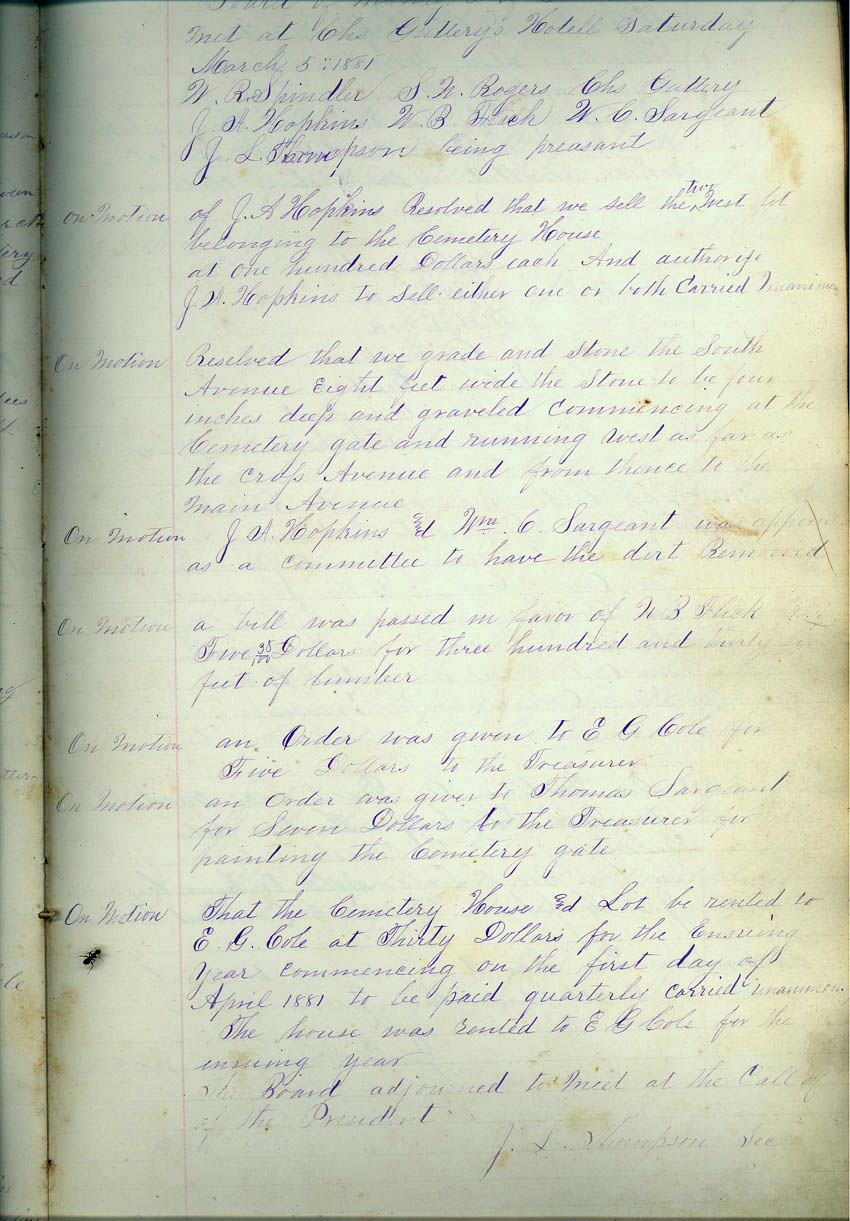 Board of
Met at Chs Guttery's Hotell Saturday
March 5: 1881
W. R. Spindler S. N. Rogers Chs Guttery
J. A. Hopkins W. B. Flick W. C. Sargeant
J. L. Thompson being preasant
on Motion of J. A Hopkins Resolved that we sell the two West lot
belonging to the Cemetery House
at one hundred Dollars each And authorise
J. A. Hopkins to sell either one or both Carried
On Motion Resolved that we grade and stone the South
Avenue Eight feet wide the Stone to be four
inches deep and graveled commencing at the
Cemetery gate and running West as far as
the cross Avenue and from thence to the
Main Avenue
On Motion J A. Hopkins and Wm. C. Sargeant was
as a committee to have the dirt Removed
On Motion a bill was passed in favor of W B Flick
Five 38/100 Dollars for three hundred and thirty
feet of lumber
On Motion an Order was given to E G Cole for
Five Dollars to the Treasurer
On Motion an order was given to Thomas Sargeant
for Seven Dollars to the Treasurer for
painting the Cemetery gate
On Motion That the Cemetery House and Lot be rented to
E. G. Cole at Thirty Dollars for the Ensueing
Year commencing on the first day of
April 1881 to be paid quarterly carried
The house was rented to E G Cole for the
insuing year
The Board adjourned to meet at the Call of
of the President
J. L. Thompson Sec